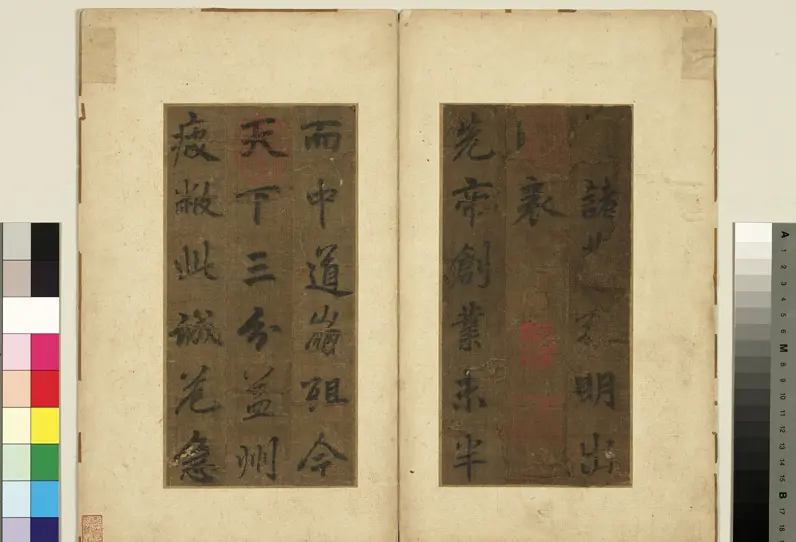 諸 明出
表
先帝創業未半
而中道崩殂今
天下三分益州
疲敝此誠危急
A 1 2 3 4 5 6 M 8 9 10 11 12 13 14 15 B 17 18